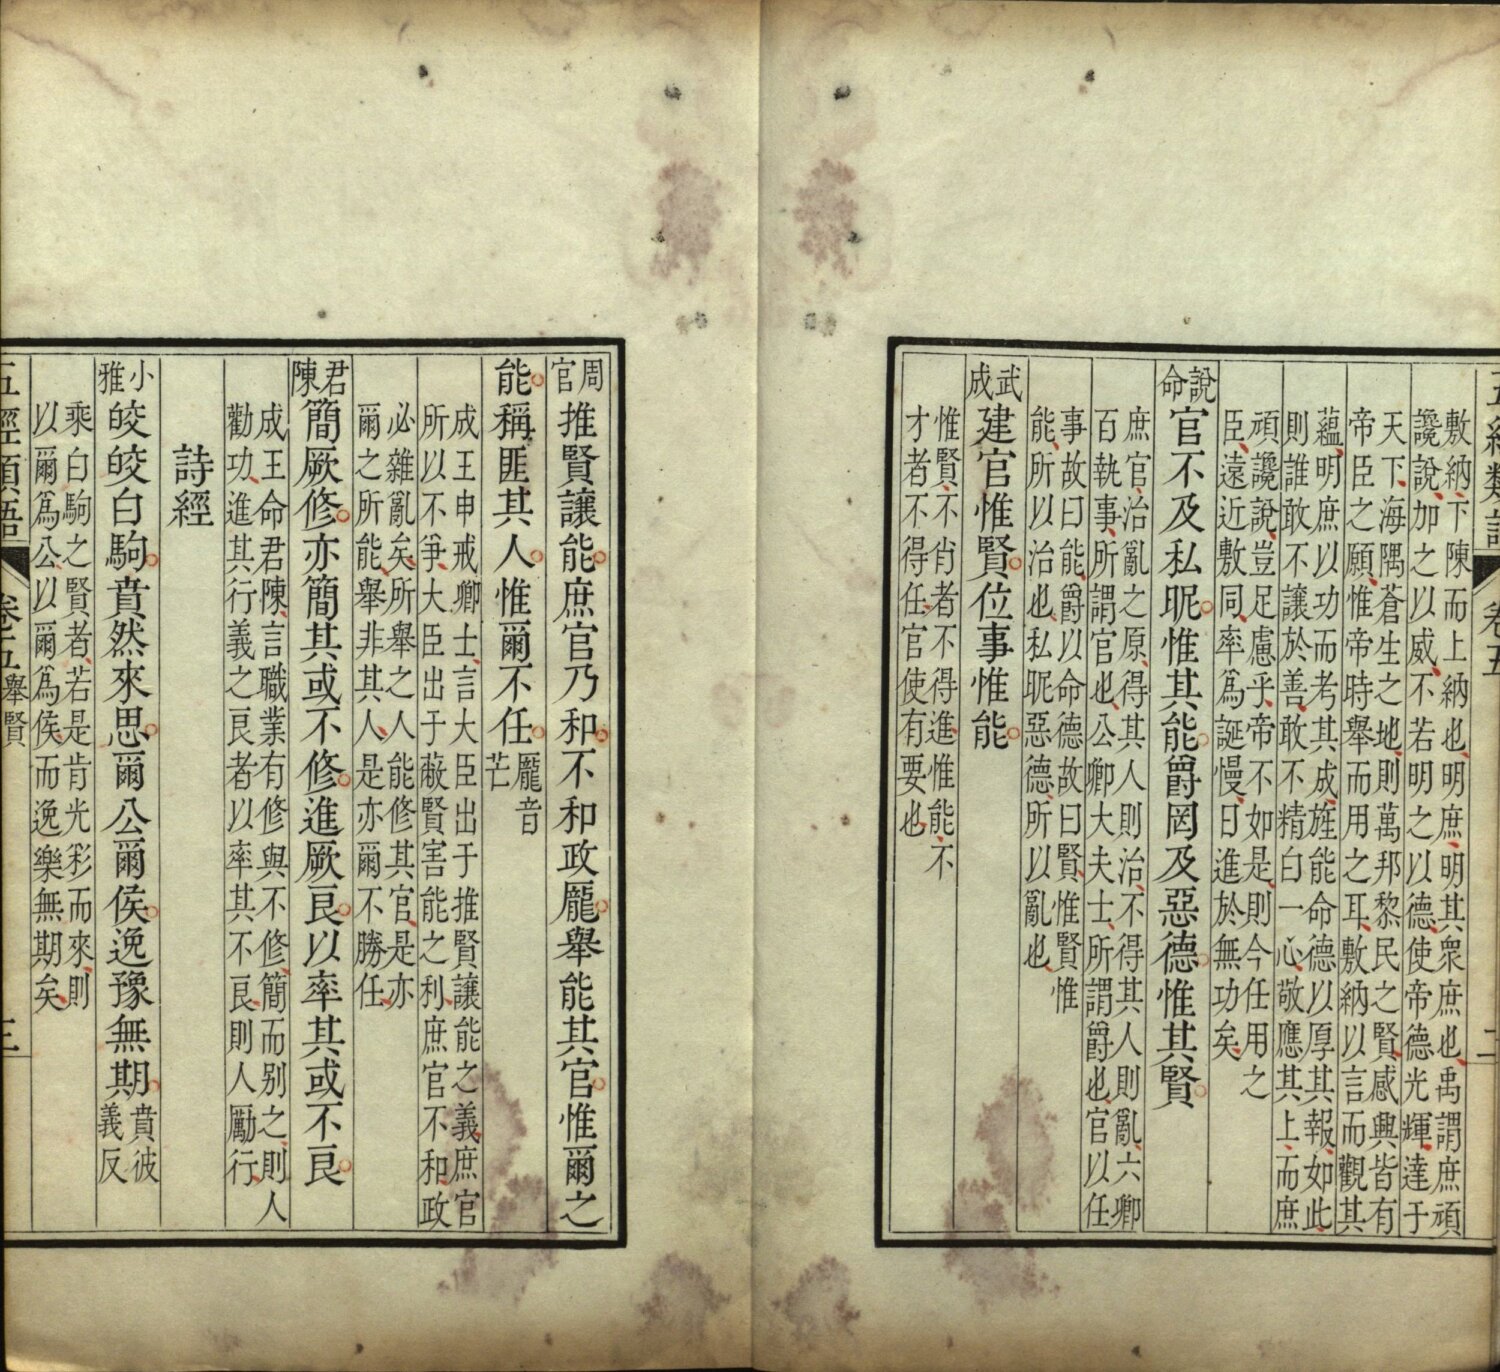 五經類語 卷五 二
敷納下陳而上納也明庶明其衆庶也禹謂庶頑
讒說加之以威不若明之以德使帝德光輝達于
天下海隅蒼生之地則萬邦黎民之賢感興皆有
帝臣之願惟帝時舉而用之耳敷納以言而觀其
蘊明庶以功而考其成旌能命德以厚其報如此
則誰敢不讓於善敢不精白一心敬應其上而庶
頑讒說豈足慮乎帝不如是則今任用之
臣遠近敷同率爲誕慢日進於無功矣
說命 官不及私昵惟其能爵罔及惡德惟其賢
庶官治亂之原得其人則治不得其人則亂六卿
百執事所謂官也公卿大夫士所謂爵也官以任
事故曰能爵以命德故曰賢惟賢惟
能所以治也私昵惡德所以亂也
武成 建官惟賢位事惟能
惟賢不肖者不得進惟能不
才者不得任官使有要也
周官 推賢讓能庶官乃和不和政厖舉能其官惟爾之
能稱匪其人惟爾不任 厖音芒
成王申戒卿士言大臣出于推賢讓能之義庶官
所以不爭大臣出于蔽賢害能之利庶官不和政
必雜亂矣所舉之人能修其官是亦
爾之所能舉非其人是亦爾不勝任
君陳 簡厥修亦簡其或不修進厥良以率其或不良
成王命君陳言職業有修與不修簡而別之則人
勸功進其行義之良者以率其不良則人勵行
詩經
小雅 皎皎白駒賁然來思爾公爾侯逸豫無期 賁彼義反
乘白駒之賢者若是肯光彩而來則
以爾爲公以爾爲侯而逸樂無期矣
五經類語 卷五 舉賢 三